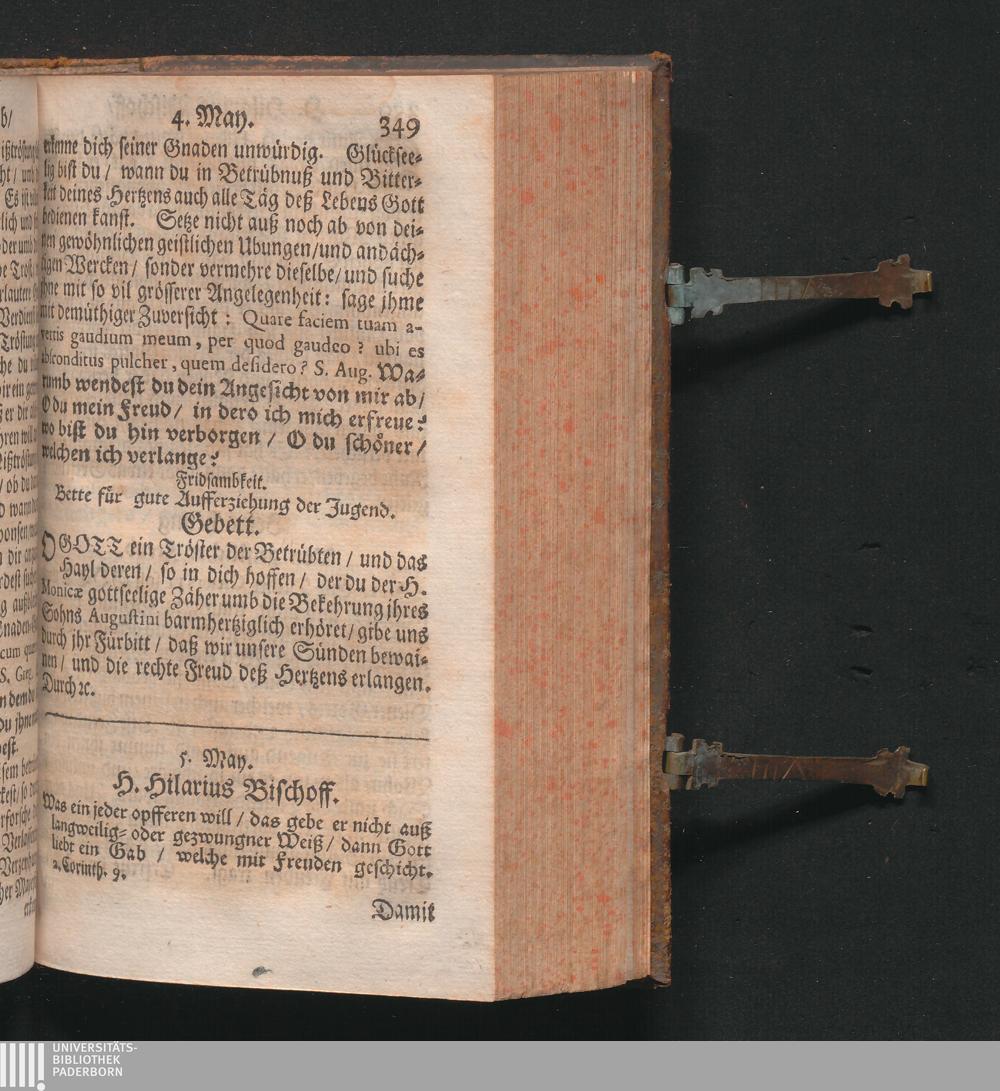 4. May. 349
erkenne dich seiner Gnaden unwürdig. Glücksee-
lig bist du / wann du in Betrübnuß und Bitter-
keit deines Hertzens auch alle Täg deß Lebens Gott
bedienen kanst. Setze nicht auß noch ab von dei-
nen gewöhnlichen geistlichen Ubungen / und andäch-
tigen Wercken / sonder vermehre dieselbe / und suche
ihne mit so vil grösserer Angelegenheit: sage jhme
mit demüthiger Zuversicht: Quare faciem tuam a-
vertis gaudium meum, per quod gaudeo? ubi es
absconditus pulcher, quem desidero? S. Aug. Wa-
rumb wendest du dein Angesicht von mir ab /
O du mein Freud / in dero ich mich erfreue?
wo bist du hin verborgen / O du schöner /
welchen ich verlange?
Fridsambkeit.
Bette für gute Aufferziehung der Jugend.
Gebett.
O GOTT ein Tröster der Betrübten / und das
Hayl deren / so in dich hoffen / der du der H.
Monicæ gottseelige Zäher umb die Bekehrung jhres
Sohns Augustini barmhertziglich erhöret / gibe uns
durch jhr Fürbitt / daß wir unsere Sünden bewai-
nen / und die rechte Freud deß Hertzens erlangen.
Durch ꝛc.
5. May.
H. Hilarius Bischoff.
Was ein jeder opfferen will / das gebe er nicht auß
langweilig- oder gezwungner Weiß / dann Gott
liebt ein Gab / welche mit Freuden geschicht.
2. Corinth. 9.
Damit
UNIVERSITÄTS-
BIBLIOTHEK
PADERBORN